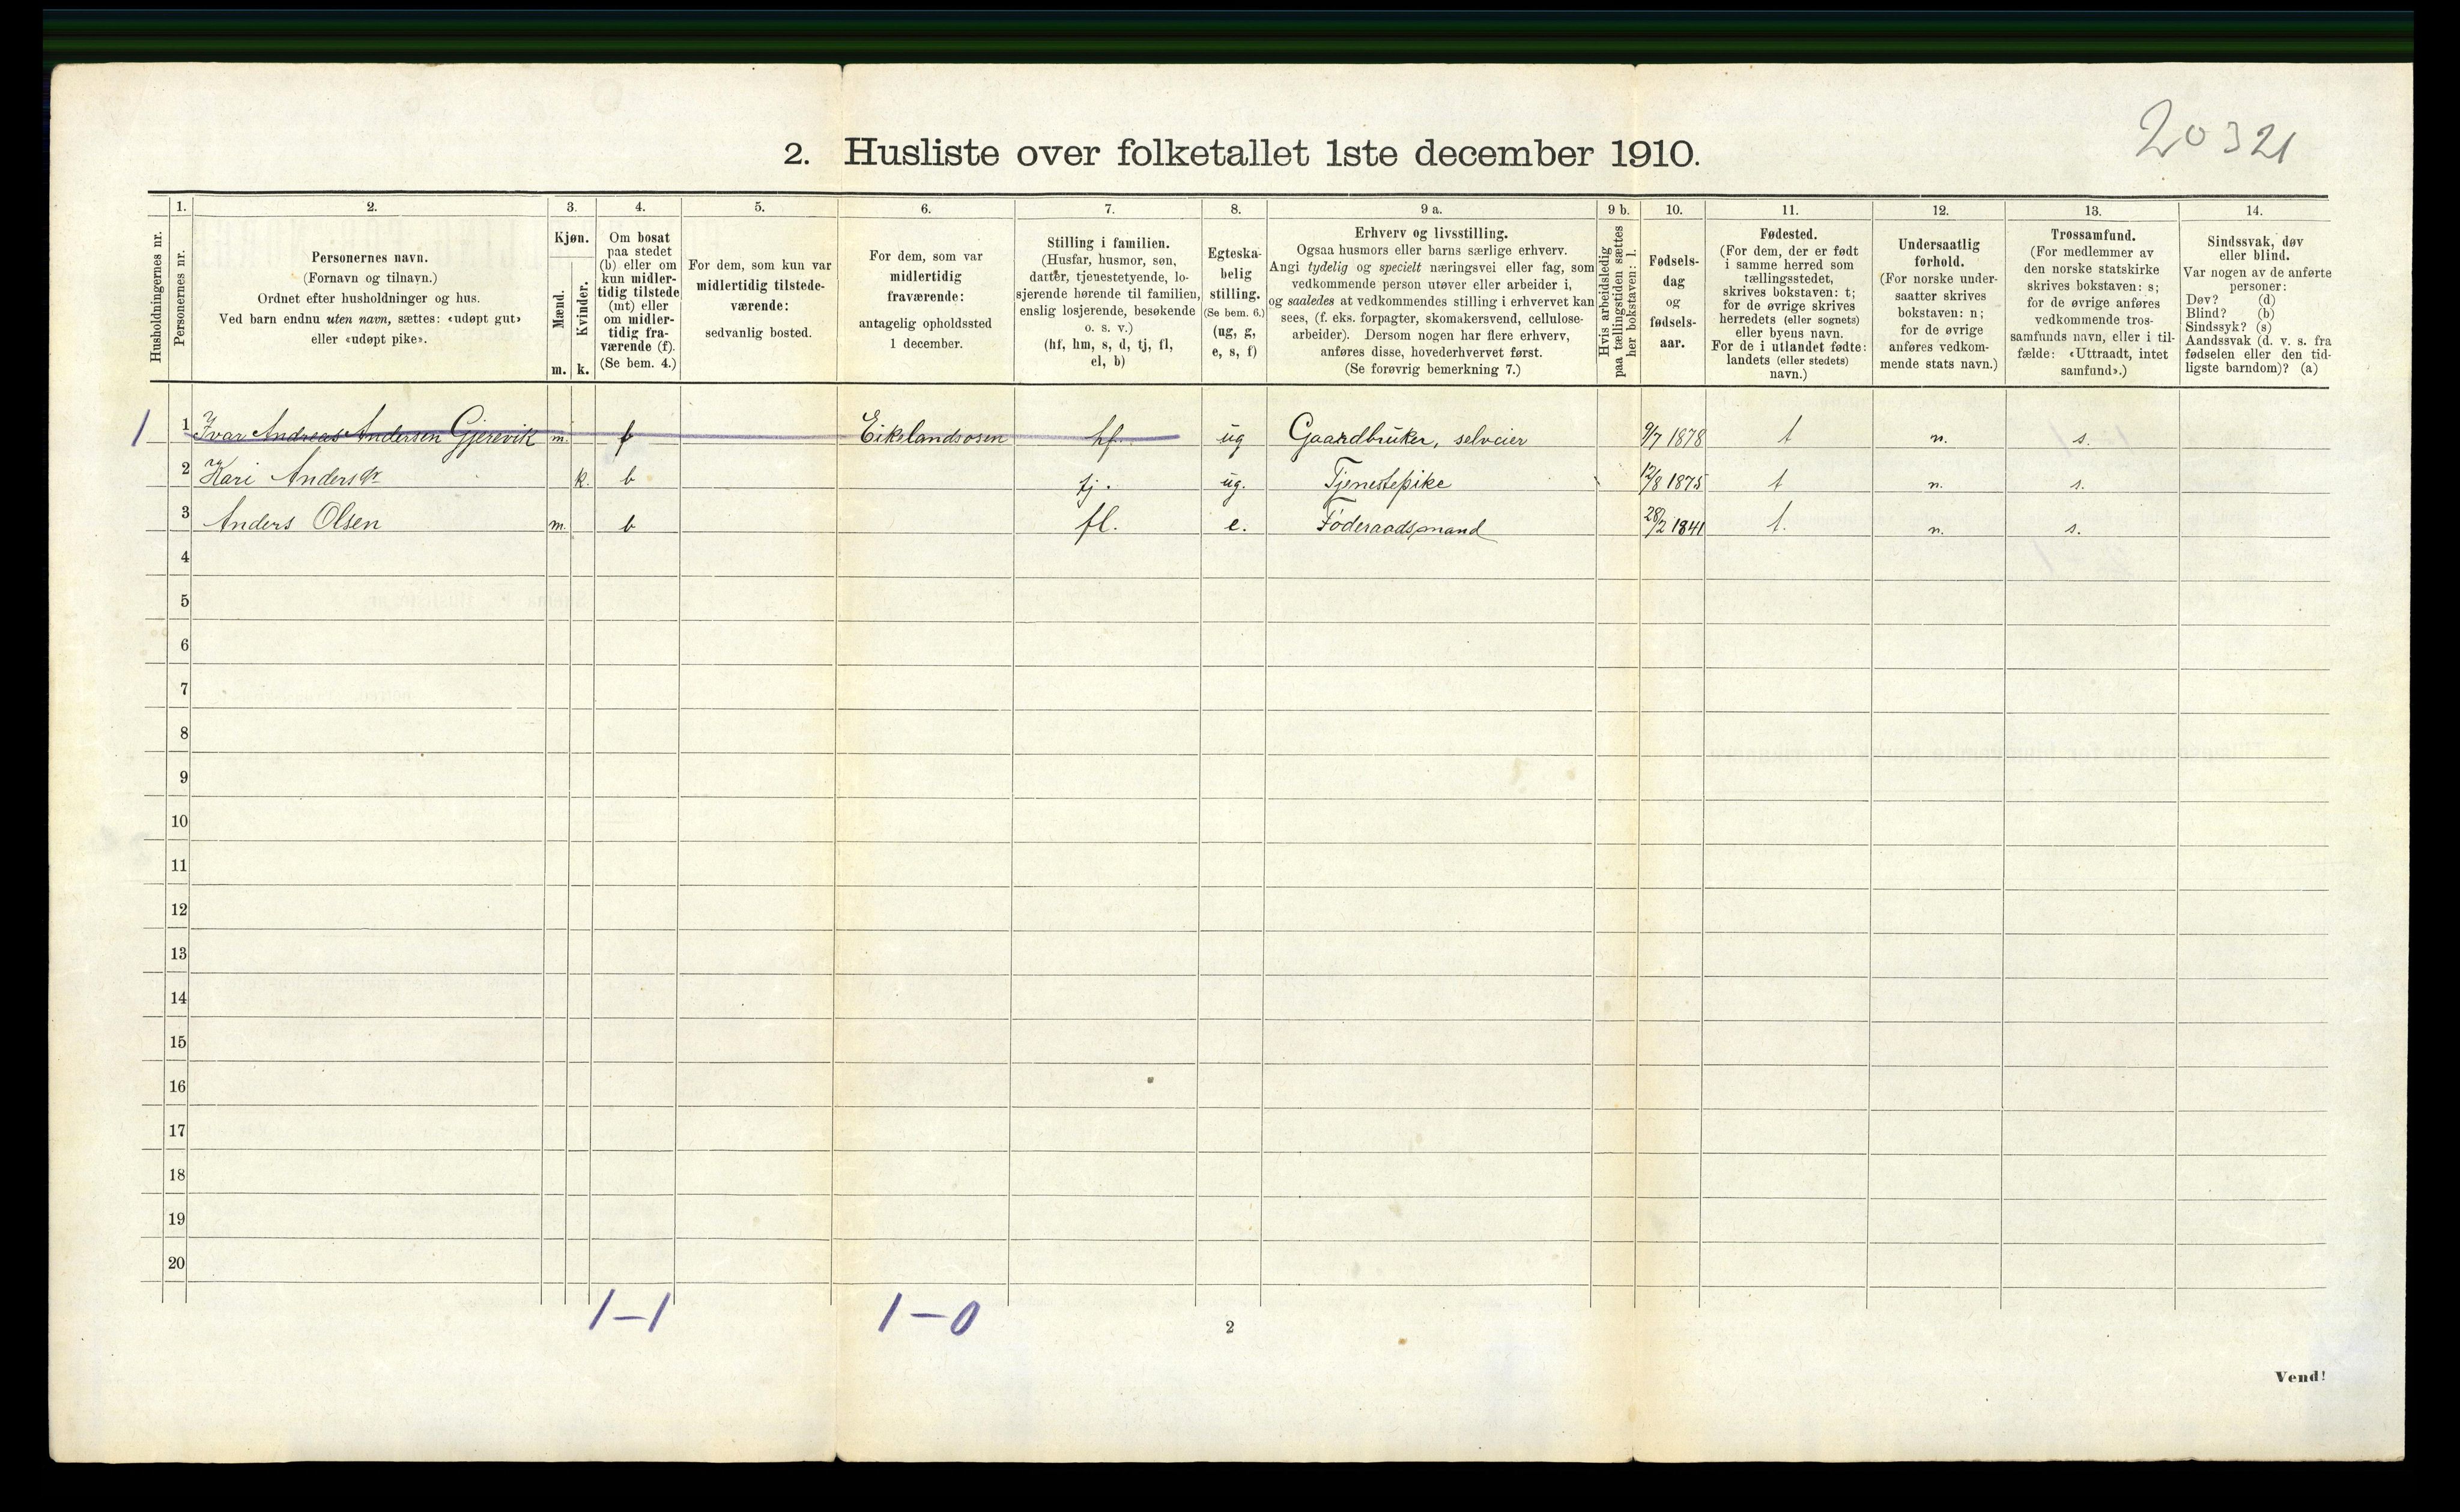 20321
2. Husliste over folketallet 1ste december 1910.
Husholdningernes nr.
1.
Personernes nr.
2.
Personernes navn.
(Fornavn og tilnavn.)
Ordnet efter husholdninger og hus.
Ved barn endnu uten navn, sættes: «udøpt gut»
eller «udøpt pike».
3.
Kjøn.
Mænd.
Kvinder.
m. k.
4.
Om bosat
paa stedet
(b) eller om
kun midler-
tidig tilstede
(mt) eller
om midler-
tidig fra-
værende (f).
(Se bem. 4.)
5.
For dem, som kun var
midlertidig tilstede-
værende:
sedvanlig bosted.
6.
For dem, som var
midlertidig
fraværende:
antagelig opholdssted
1 december.
7.
Stilling i familien.
(Husfar, husmor, søn,
datter, tjenestetyende, lo-
sjerende hørende til familien,
enslig losjerende, besøkende
o. s. v.)
(hf, hm, s, d, tj, fl,
el, b)
8.
Egteska-
belig
stilling.
(Se bem. 6.)
(ug, g,
e, s, f)
9 a.
Erhverv og livsstilling.
Ogsaa husmors eller barns særlige erhverv.
Angi tydelig og specielt næringsvei eller fag, som
vedkommende person utøver eller arbeider i,
og saaledes at vedkommendes stilling i erhvervet kan
sees, (f. eks. forpagter, skomakersvend, cellulose-
arbeider). Dersom nogen har flere erhverv,
anføres disse, hovederhvervet først.
(Se forøvrig bemerkning 7.)
9 b.
Hvis arbeidsledig
paa tællingstiden sættes
her bokstaven: l.
10.
Fødsels-
dag
og
fødsels-
aar.
11.
Fødested.
(For dem, der er født
i samme herred som
tællingsstedet,
skrives bokstaven: t;
for de øvrige skrives
herredets (eller sognets)
eller byens navn.
For de i utlandet fødte:
landets (eller stedets)
navn.)
12.
Undersaatlig
forhold.
(For norske under-
saatter skrives
bokstaven: n;
for de øvrige
anføres vedkom-
mende stats navn.)
13.
Trossamfund.
(For medlemmer av
den norske statskirke
skrives bokstaven: s;
for de øvrige anføres
vedkommende tros-
samfunds navn, eller i til-
fælde: «Uttraadt, intet
samfund».)
14.
Sindssvak, døv
eller blind.
Var nogen av de anførte
personer:
Døv? (d)
Blind? (b)
Sindssyk? (s)
Aandssvak (d. v. s. fra
fødselen eller den tid-
ligste barndom)? (a)
1 1 Ivar Andreas Andersen Gjerevik m. f Eikelandsosen hf. ug Gaardbruker, selveier 9/7 1878 t n. s.
2 Kari Andersdr k. b tj. ug. Tjenestepike 12/8 1875 t n. s.
3 Anders Olsen m. b fl. e. Føderaadsmand 28/2 1841 t. n. s.
4
5
6
7
8
9
10
11
12
13
14
15
16
17
18
19
20
1-1 1-0
2
Vend!